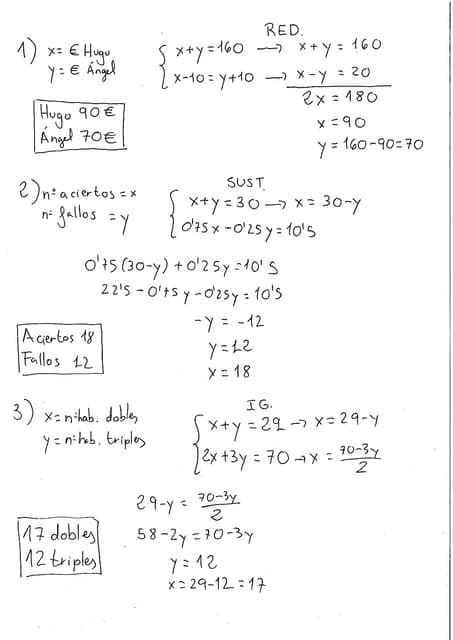 RED.
1) x = € Hugo
y = € Ángel
x+y=160 → x+y = 160
x-10=y+10 → x-y = 20
2x = 180
x = 90
y = 160-90=70
Hugo 90€
Ángel 70€
SUST.
2) nº aciertos = x
nº fallos = y
x+y=30 → x = 30-y
0'75x-0'25y=10'5
0'75(30-y)+0'25y=10'5
22'5-0'75y-0'25y=10'5
-y = -12
y=12
x = 18
Aciertos 18
Fallos 12
IG.
3) x=nº hab. dobles
y=nº hab. triples
x+y=29 → x=29-y
2x+3y=70 → x = 70-3y/2
29-y = 70-3y/2
58-2y=70-3y
y=12
x=29-12=17
17 dobles
12 triples